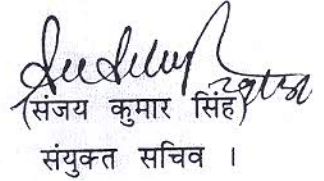 (संजय कुमार सिंह)
संयुक्त सचिव ।